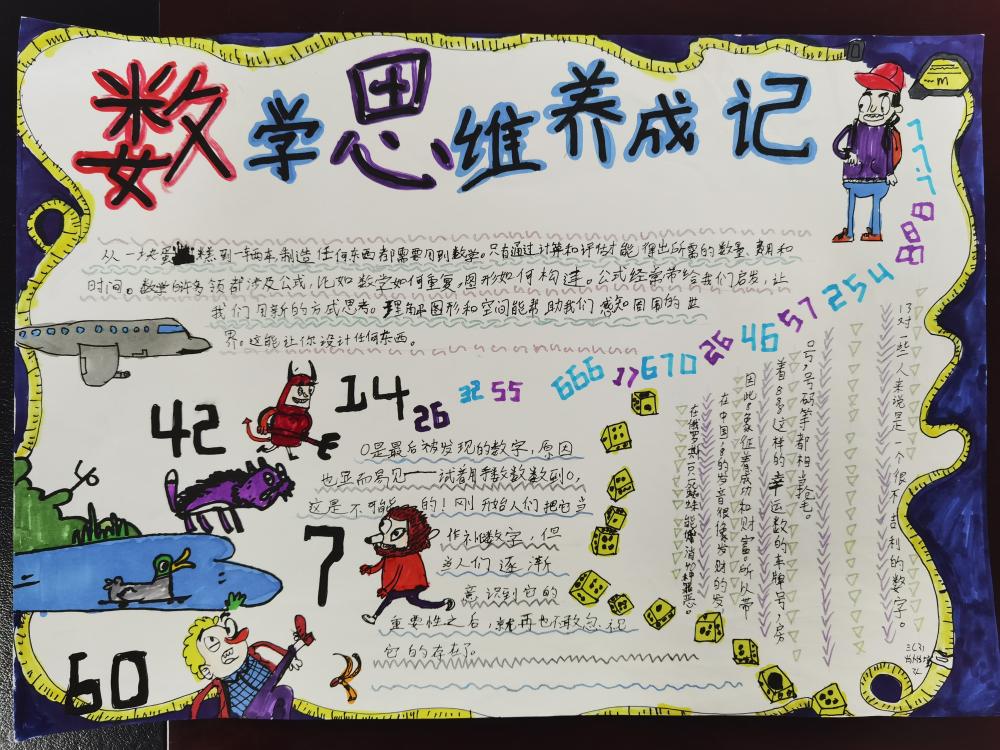 数学思维养成记
从一块蛋糕到一辆车制造任何东西都需要用到数学。只有通过计算和评估才能得出所需的数量、费用和
时间。数学的许多领都涉及公式,比如数字如何重复,图形如何构建。公式经常带给我们启发,让
我们用新的方式思考。理解图形和空间能帮助我们感知周围的世
界。这能让你设计任何东西。
m
7.7.7
88
254
57
46
26
670
17
666
55
32
26
14
42
0是最后被发现的数字,原因
也显而易见——试着用手数数数到0,
这是不可能的!刚开始人们把它当
作补数字,但
当人们逐渐
意识到它的
重要性之后,就再也不敢忘记
它的存在了。
7
60
13对一些人来说是一个很不吉利的数字。
在中国,8的发音很像发财的发
因此8象征着成功和财富。所以带
着88这样的幸运数的车牌号,房
号,号码等都相当抢手。
在俄罗斯
三(3)